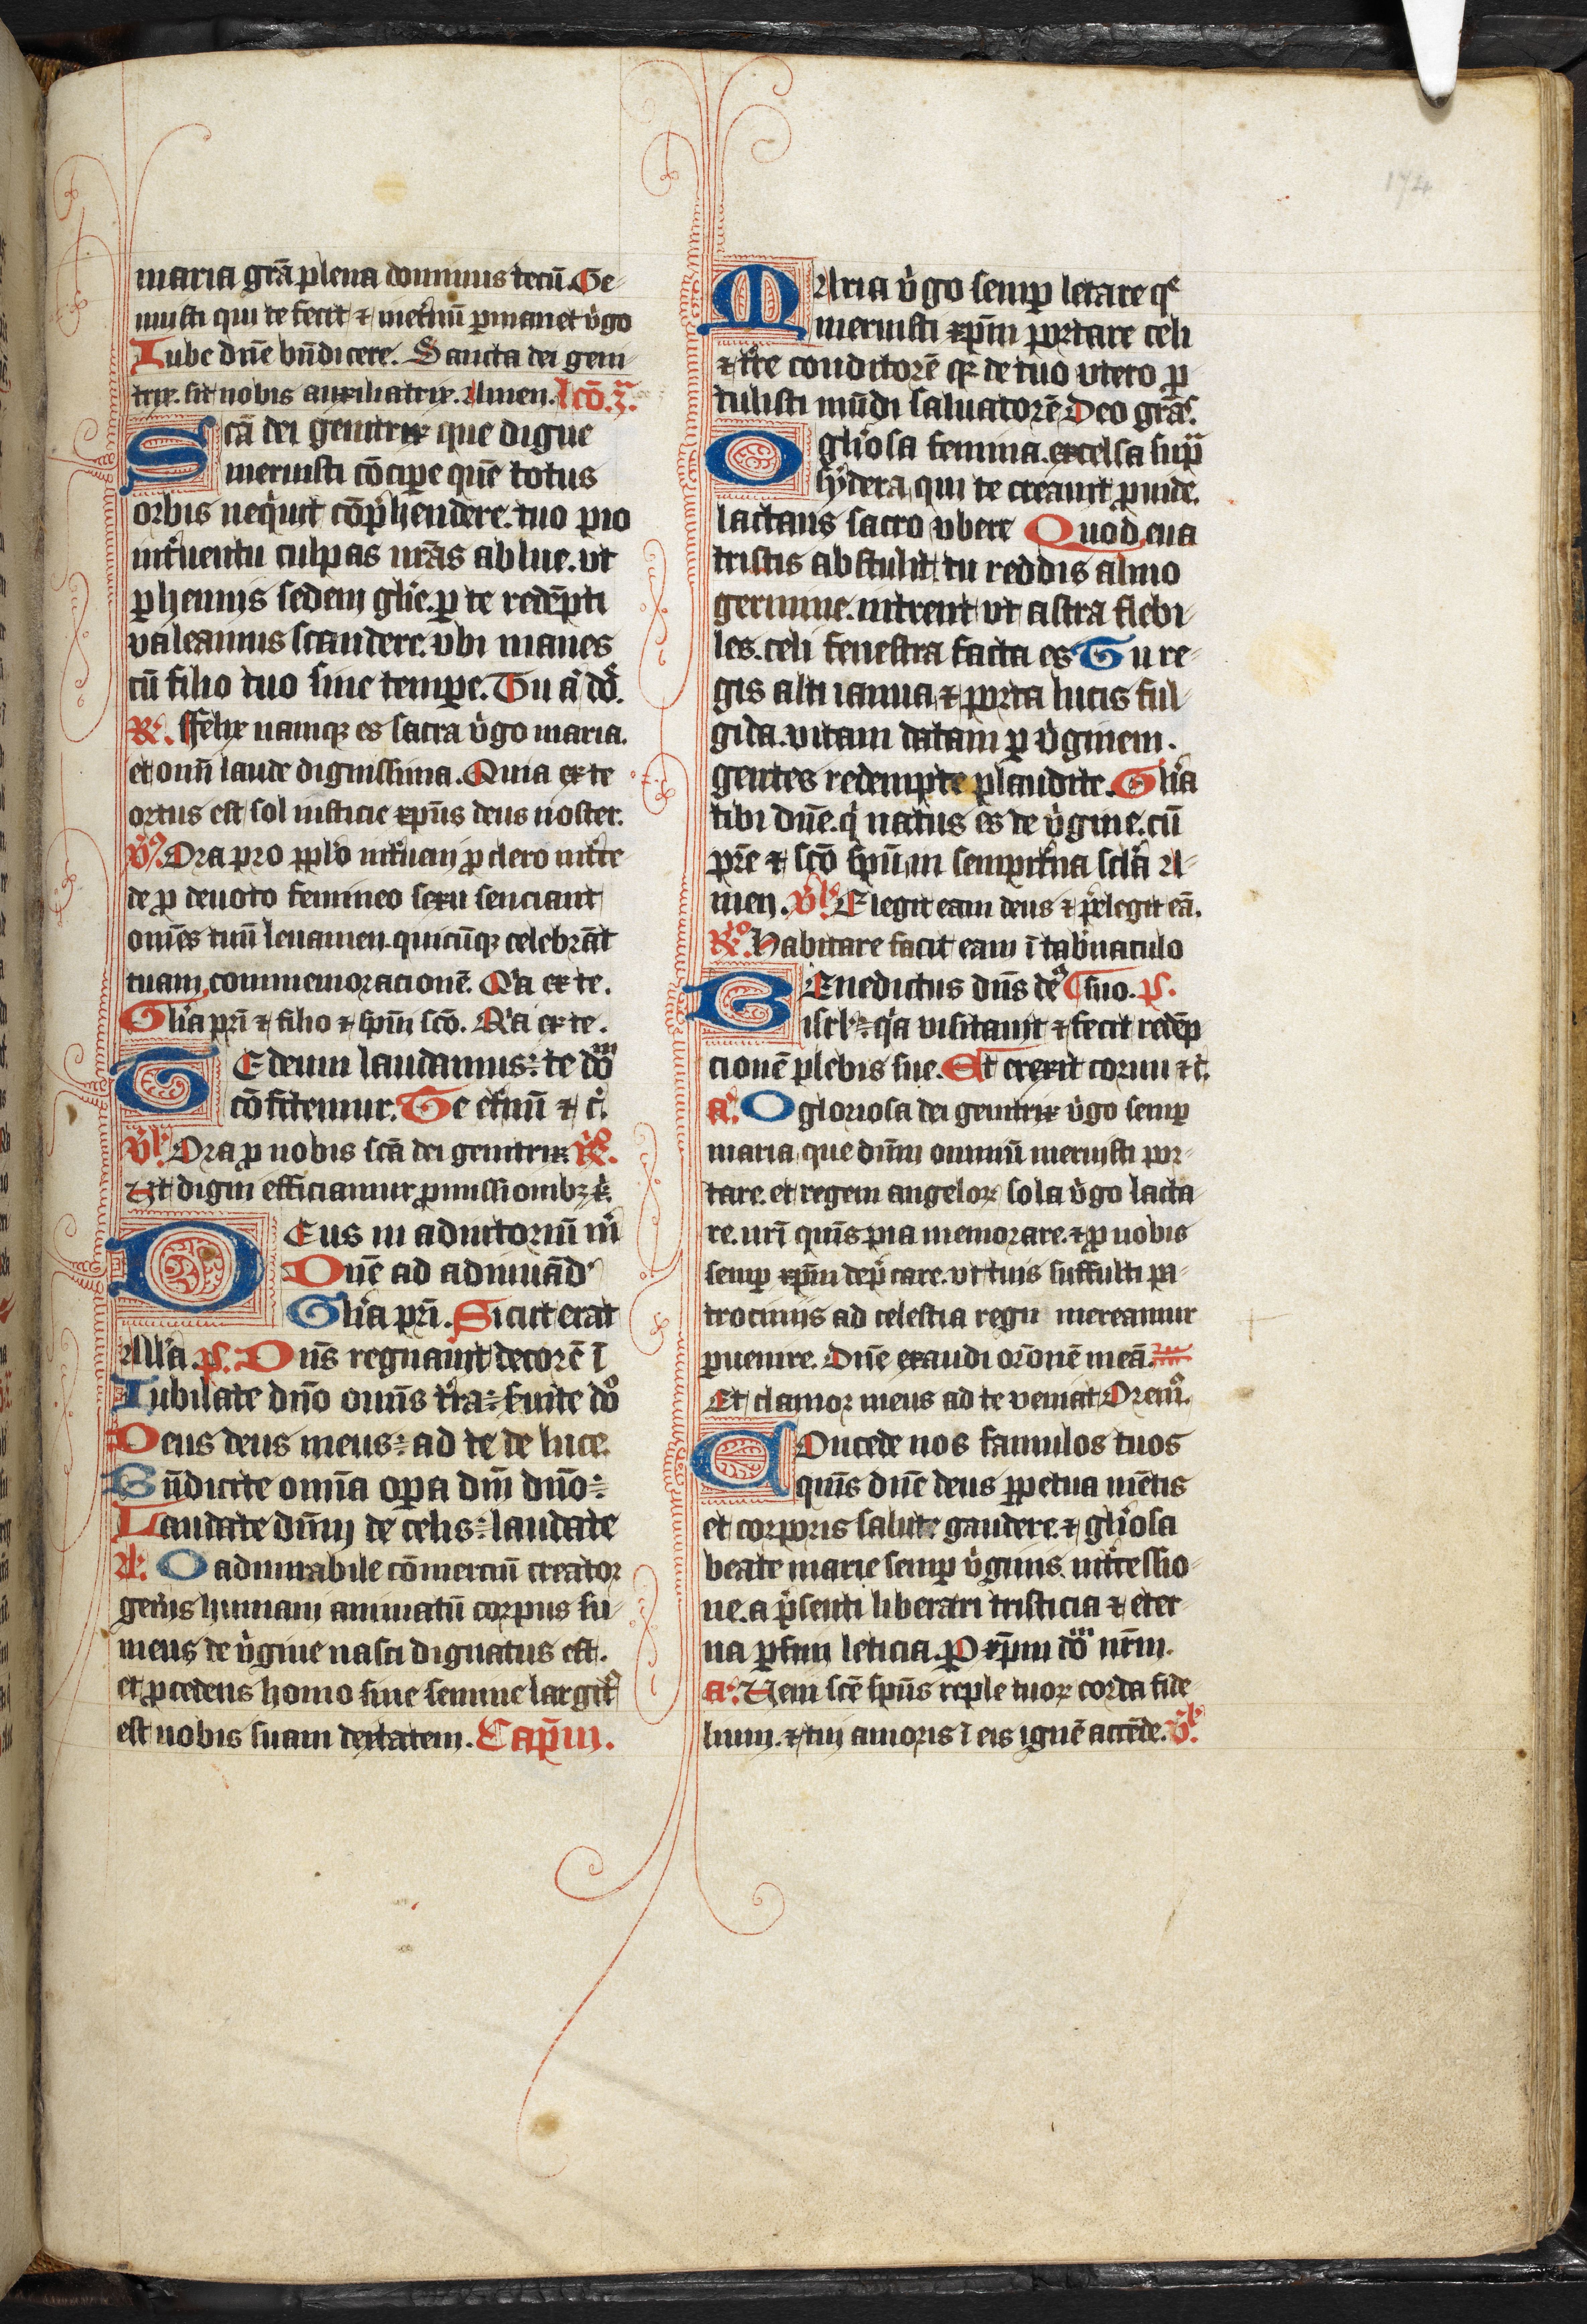 174
maria grā plena dominus tecū. Ge-
nuisti qui te fecit ⁊ inet̉nū ꝑmanet v̉go
Iube dn̄e bn̄dicere. Sancta dei geni-
trix. sit nobis auxiliatrix. Amen. lcō. 3ᵃ.
Scā dei genitrix que digne
meruisti cōcipe quē totus
orbis neqͥuit cōp̄hendere. tuo pio
int̉uentu culpas nr̄as ablue. vt
ꝑhennis sedem glīe. ꝑ te redēpti
valeamus scandere. vbi manes
cū filio tuo sine tempe. Tu aͧ dō.
R̷. Felix namqꝫ es sacra v̉go maria.
et omī laude dignissima. Quia ex te
ortus est sol iusticie xp̄us deus noster.
v̉ꝰ. Ora pro pplō int̉ueni ꝓ clero int̉ce
de ꝓ deuoto femineo sexu senciant
omēs tuū leuamen. quicūqꝫ celebrāt
tuam commemoracionē. Qͥa ex te.
Glīa pr̄i ⁊ filio ⁊ spīn scō. Qͥa ex te.
TE deum laudamus: te dōᵐ
cōfitemur. Te et̉nū ⁊ c̉.
v̉ᵇ Ora ꝓ nobis scā dei genitrix R̷º.
Vt digni efficiamur ꝓmissionibꝫ x̉.
DEus in adiutoriū m̄
Dn̄e ad adiuuād'
Glīa pr̄i. Sicut erat
Allīa p̄s. Dn̄s regnauit decorē ī
Iubilate dn̄o omīs t̉ra: suite dō
Deus deus meus: ad te de luce.
Bn̄dicite omīa oꝑa dn̄i dn̄o:
Laudate dn̄m de celis: laudate
A. O admirabile cōmerciū creator
gen̉is humani animatū corpus su-
mens de v̉gine nasci dignatus est.
et ꝓcedens homo sine semine largit'
est nobis suam deitatem. Cap̄m.
MAria v̉go semꝑ letare qͤ
meruisti xp̄m portare celi
⁊ tr̉e conditorē qꝫ de tuo vtero ꝓ
tulisti mūdi saluatorē Deo grās.
O glīosa femina. excelsa supͣ
sydera, qui te creauit ꝓuide.
lactans sacro vbere Quod eua
tristis abstulit tu reddis almo
germine. intrent vt astra flebi-
les. celi fenestra facta es Tu re-
gis alti ianua, ⁊ porta lucis ful-
gida. vitam datam ꝑ v̉ginem.
gentes redempte plaudite. Glīa
tibi dn̄e. qͥ natus es de v̉gine. cū
pr̄e ⁊ scō spū, in sempit̉na sclā A-
men. v̉ᵇ. Elegit eam deus ⁊ p̄elegit eā.
R̷º. Habitare facit eam ī tab̉naculo
BEnedictus dn̄s deꝰ suo. p̄s.
isrl̄: qͥa visitauit ⁊ fecit redēp
cionē plebis sue. Et erexit cornu ⁊ c̄.
a. O gloriosa dei genitrix v̉go semꝑ
maria, que dn̄m omniū meruisti por-
tare. et regem angeloꝝ sola v̉go lacta-
re. nr̄i quīs pia memorare. ⁊ ꝓ nobis
semꝑ xp̄m dep̄care. vt tuis suffulti pa-
trociniis ad celestia regn mereamur
ꝑuenire. Dn̄e exaudi orōnē meā.
Et clamor meus ad te veniat Oremꝰ.
COncede nos famulos tuos
quīs dn̄e deus ꝑpetua mētis
et corporis salute gaudere. ⁊ glīosa
beate marie semꝑ v̉ginis. int̉cessio-
ne. a p̄senti liberari tristicia ⁊ eter-
na ꝑfrui leticia. P xp̄m dōᵐ nr̄m.
a. Veni scē spūs reple tuoꝝ corda fide-
lium. ⁊ tui amoris ī eis ignē accēde. v̉ᵇ.